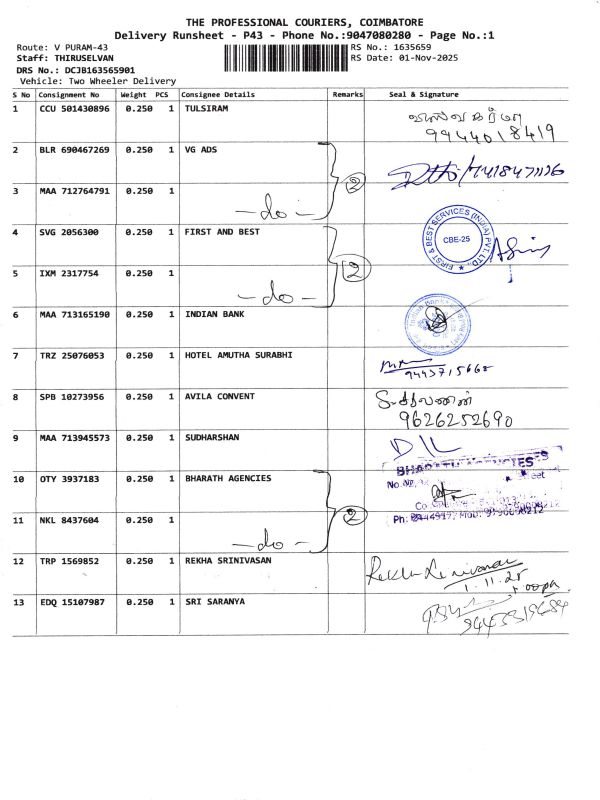 THE PROFESSIONAL COURIERS, COIMBATORE
Delivery Runsheet - P43 - Phone No.:9047080280 - Page No.:1
Route: V PURAM-43 RS No.: 1635659
Staff: THIRUSELVAN RS Date: 01-Nov-2025
DRS No.: DCJB163565901
Vehicle: Two Wheeler Delivery
S No Consignment No Weight PCS Consignee Details Remarks Seal & Signature
1 CCU 501430896 0.250 1 TULSIRAM
9944018419
2 BLR 690467269 0.250 1 VG ADS
3 MAA 712764791 0.250 1
-do- 2
4 SVG 2056300 0.250 1 FIRST AND BEST
FIRST & BEST SERVICES (INDIA) PVT. LTD.
CBE-25
5 IXM 2317754 0.250 1
-do- 2
6 MAA 713165190 0.250 1 INDIAN BANK
7 TRZ 25076053 0.250 1 HOTEL AMUTHA SURABHI
8 SPB 10273956 0.250 1 AVILA CONVENT
9626252690
9 MAA 713945573 0.250 1 SUDHARSHAN
BHARATH AGENCIES
10 OTY 3937183 0.250 1 BHARATH AGENCIES
11 NKL 8437604 0.250 1
-do- 2
12 TRP 1569852 0.250 1 REKHA SRINIVASAN
Rekha Srinivasan
1.11.25
13 EDQ 15107987 0.250 1 SRI SARANYA